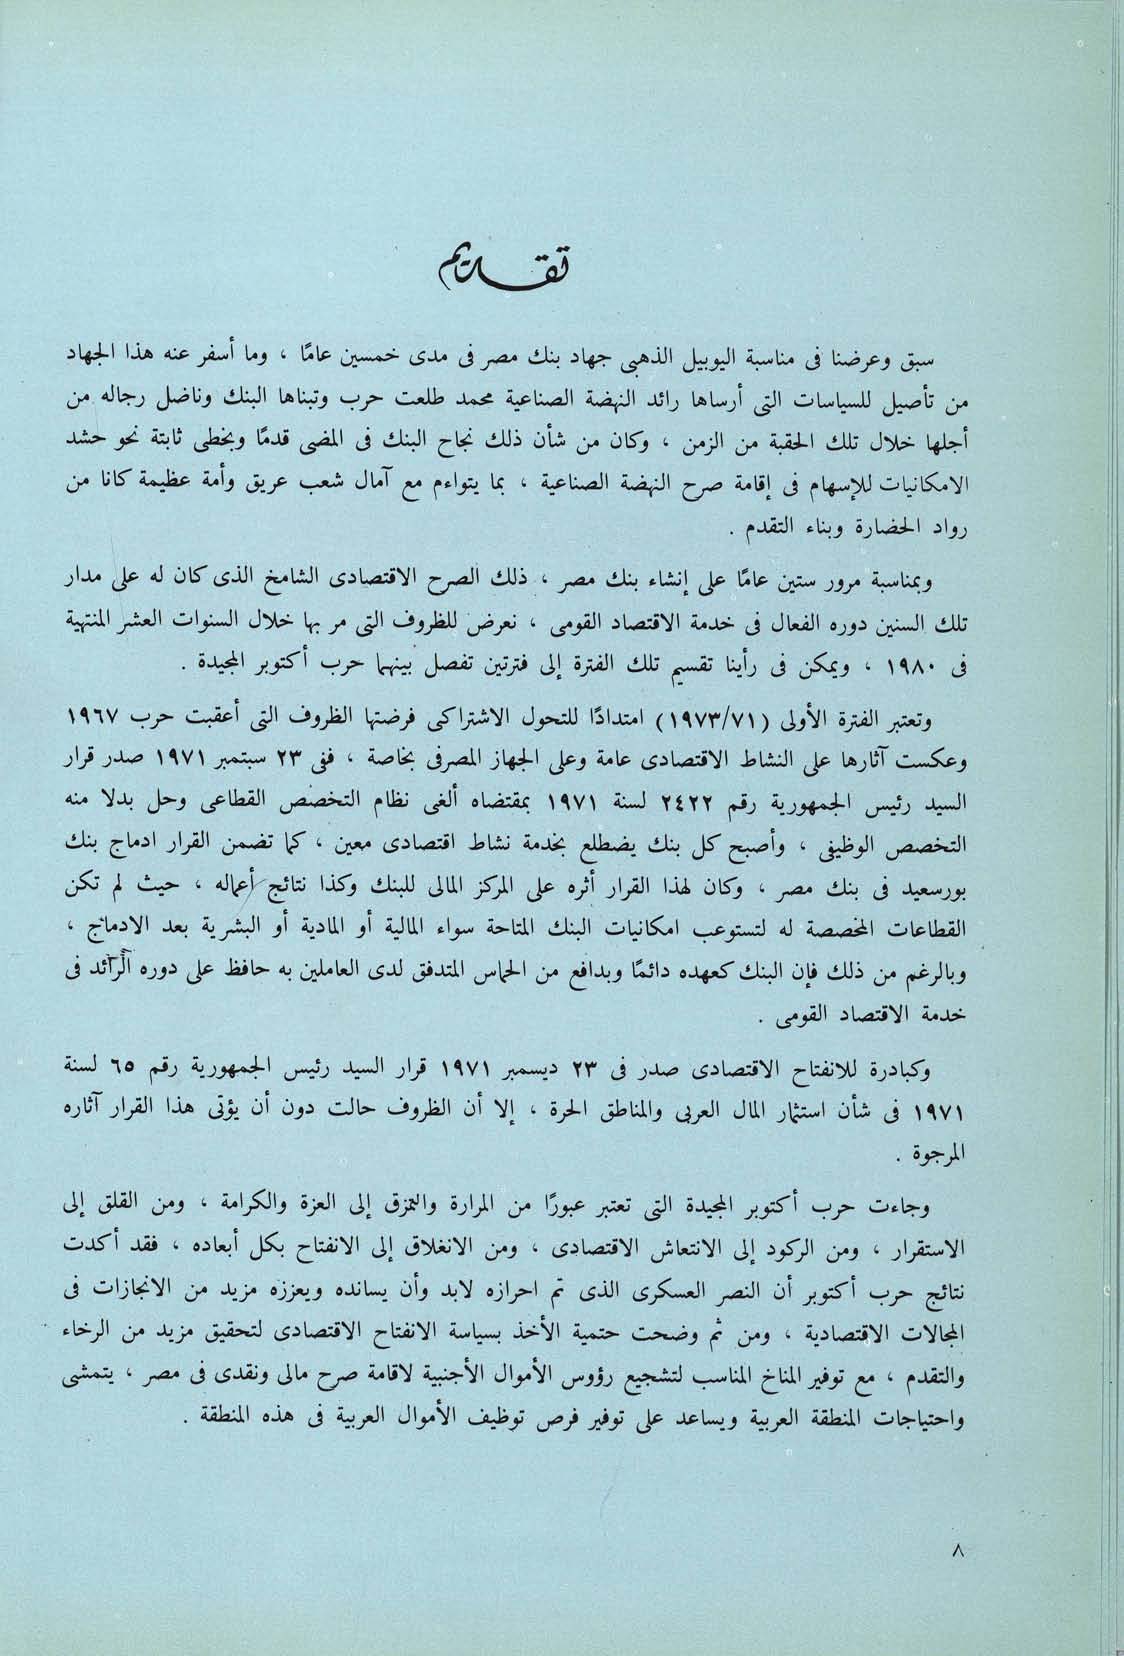 تقديم
سبق وعرضنا فى مناسبة اليوبيل الذهبى جهاد بنك مصر فى مدى خمسين عامًا ، وما أسفر عنه هذا الجهاد
من تأصيل للسياسات التى أرساها رائد النهضة الصناعية محمد طلعت حرب وتبناها البنك وناضل رجاله من
أجلها خلال تلك الحقبة من الزمن ، وكان من شأن ذلك نجاح البنك فى المضى قدمًا وبخطى ثابتة نحو حشد
الامكانيات للإسهام فى إقامة صرح النهضة الصناعية ، بما يتواءم مع آمال شعب عريق وأمة عظيمة كانا من
رواد الحضارة وبناء التقدم .
وبمناسبة مرور ستين عامًا على إنشاء بنك مصر ، ذلك الصرح الاقتصادى الشامخ الذى كان له على مدار
تلك السنين دوره الفعال فى خدمة الاقتصاد القومى ، نعرض للظروف التى مر بها خلال السنوات العشر المنتهية
فى ١٩٨٠ ، ويمكن فى رأينا تقسيم تلك الفترة إلى فترتين تفصل بينهما حرب أكتوبر المجيدة .
وتعتبر الفترة الأولى (١٩٧٣/٧١) امتدادًا للتحول الاشتراكى فرضتها الظروف التى أعقبت حرب ١٩٦٧
وعكست آثارها على النشاط الاقتصادى عامة وعلى الجهاز المصرفى بخاصة ، ففى ٢٣ سبتمبر ١٩٧١ صدر قرار
السيد رئيس الجمهورية رقم ٢٤٢٢ لسنة ١٩٧١ بمقتضاه ألغى نظام التخصص القطاعى وحل بدلا منه
التخصص الوظيفى ، وأصبح كل بنك يضطلع بخدمة نشاط اقتصادى معين ، كما تضمن القرار ادماج بنك
بورسعيد فى بنك مصر ، وكان لهذا القرار أثره على المركز المالى للبنك وكذا نتائج أعماله ، حيث لم تكن
القطاعات المخصصة له لتستوعب امكانيات البنك المتاحة سواء المالية أو المادية أو البشرية بعد الادماج ،
وبالرغم من ذلك فإن البنك كعهده دائمًا وبدافع من الحماس المتدفق لدى العاملين به حافظ على دوره الرائد فى
خدمة الاقتصاد القومى .
وكبادرة للانفتاح الاقتصادى صدر فى ٢٣ ديسمبر ١٩٧١ قرار السيد رئيس الجمهورية رقم ٦٥ لسنة
١٩٧١ فى شأن استثمار المال العربى والمناطق الحرة ، إلا أن الظروف حالت دون أن يؤتى هذا القرار آثاره
المرجوة .
وجاءت حرب أكتوبر المجيدة التى تعتبر عبورًا من المرارة والتمزق إلى العزة والكرامة ، ومن القلق إلى
الاستقرار ، ومن الركود إلى الانتعاش الاقتصادى ، ومن الانغلاق إلى الانفتاح بكل أبعاده ، فقد أكدت
نتائج حرب أكتوبر أن النصر العسكرى الذى تم احرازه لابد وأن يسانده ويعززه مزيد من الانجازات فى
المجالات الاقتصادية ، ومن ثم وضحت حتمية الأخذ بسياسة الانفتاح الاقتصادى لتحقيق مزيد من الرخاء
والتقدم ، مع توفير المناخ المناسب لتشجيع رؤوس الأموال الأجنبية لاقامة صرح مالى ونقدى فى مصر ، يتمشى
واحتياجات المنطقة العربية ويساعد على توفير فرص توظيف الأموال العربية فى هذه المنطقة .
٨